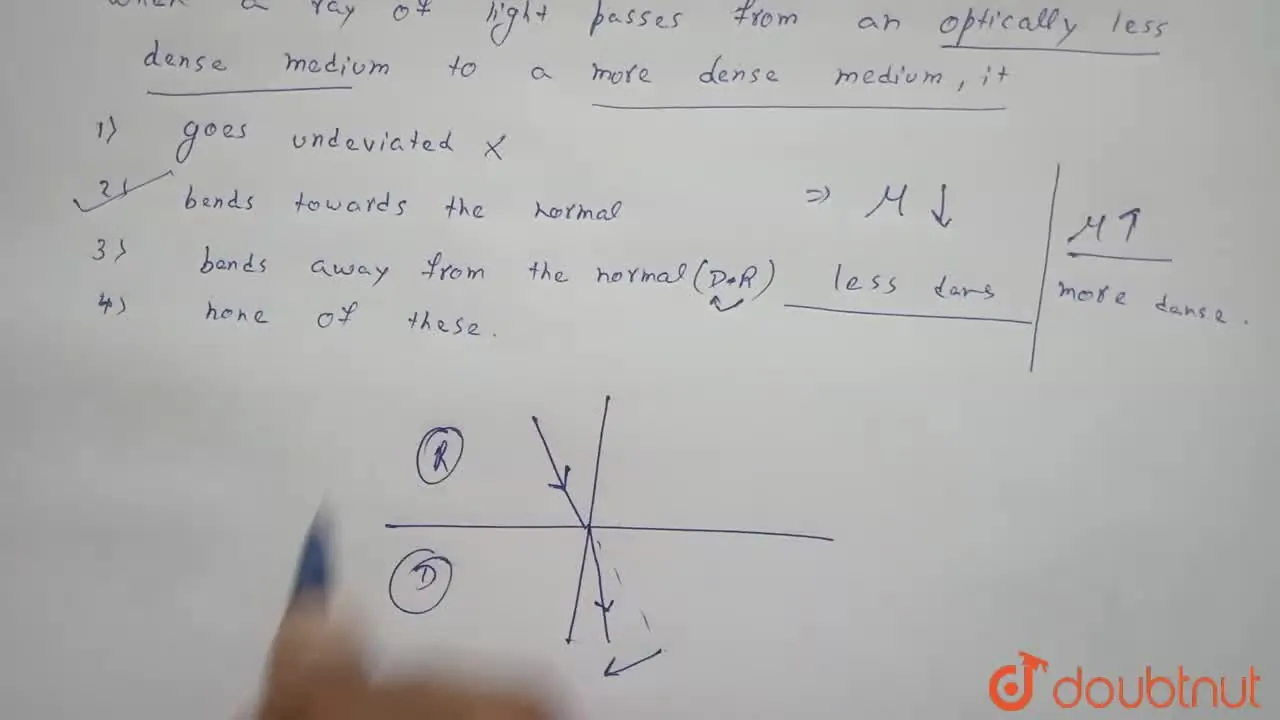 when a ray of light passes from an optically less
dense medium to a more dense medium, it
1) goes undeviated X
2) bends towards the normal
3) bends away from the normal (D→R)
4) none of these.
⇒ μ ↓
less dans
μ ↑
more danse.
R
D
doubtnut